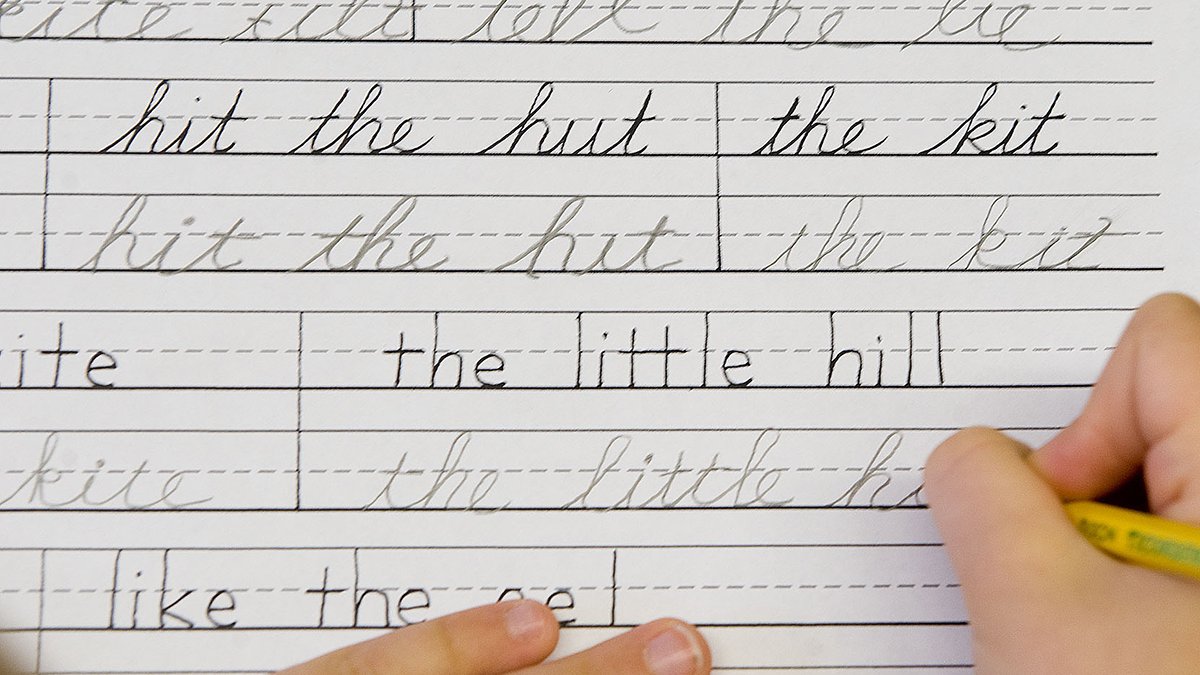 tell the
hit the hut the kit
hit the hut the kit
ite the little hill
kite the little hi
like the